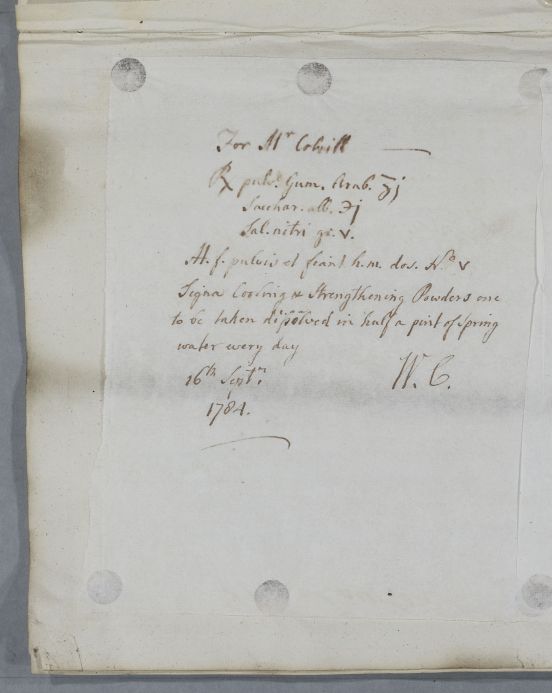 For Mr Colvill
℞ pulv. Gum. Arab. ʒj
Sacchar. alb. ℈j
Sal. nitri gr. v.
M. f. pulvis et fiant h. m. dos. No v
Signa Cooling & Strengthening Powders one
to be taken dissolved in half a pint of Spring
water every day
16th Septr.
W. C.
1784.